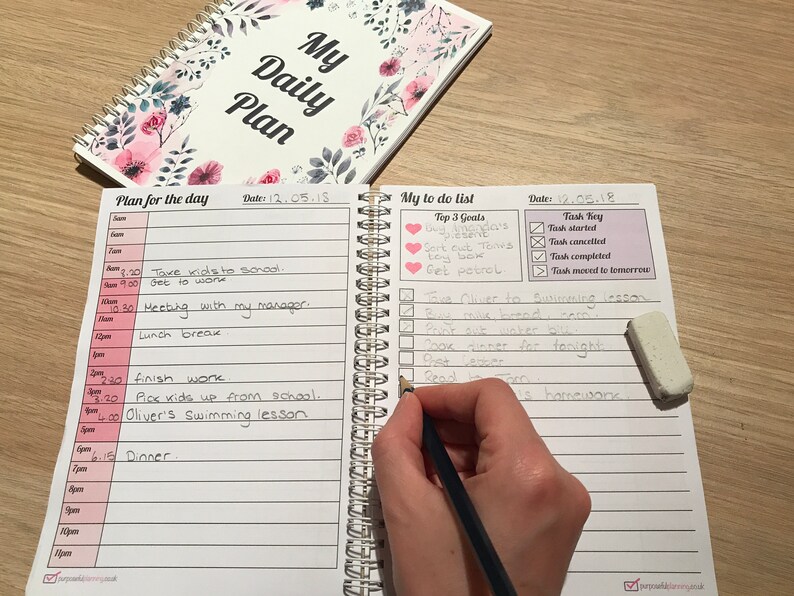 My
Daily
Plan
Plan for the day
Date: 12.05.18
5am
6am
7am
8am 8.20 Take kids to school.
9am 9.00 Get to work
10am 10.30 Meeting with my manager.
11am
12pm Lunch break.
1pm
2pm 2:30 finish work.
3pm 3.20 Pick kids up from school.
4pm 4.00 Oliver's swimming lesson
5pm
6pm 6.15 Dinner.
7pm
8pm
9pm
10pm
11pm
purposefulplanning.co.uk
My to do list
Date: 12.05.18
Top 3 Goals
Buy Amanda's
present
Sort out Tom's
toy box
Get petrol.
Task Key
Task started
Task cancelled
Task completed
Task moved to tomorrow
Take Oliver to swimming lesson
Buy milk, bread, ham.
Print out water bill.
Cook dinner for tonight
Post letter
Read to Tom
's homework.
purposefulplanning.co.uk